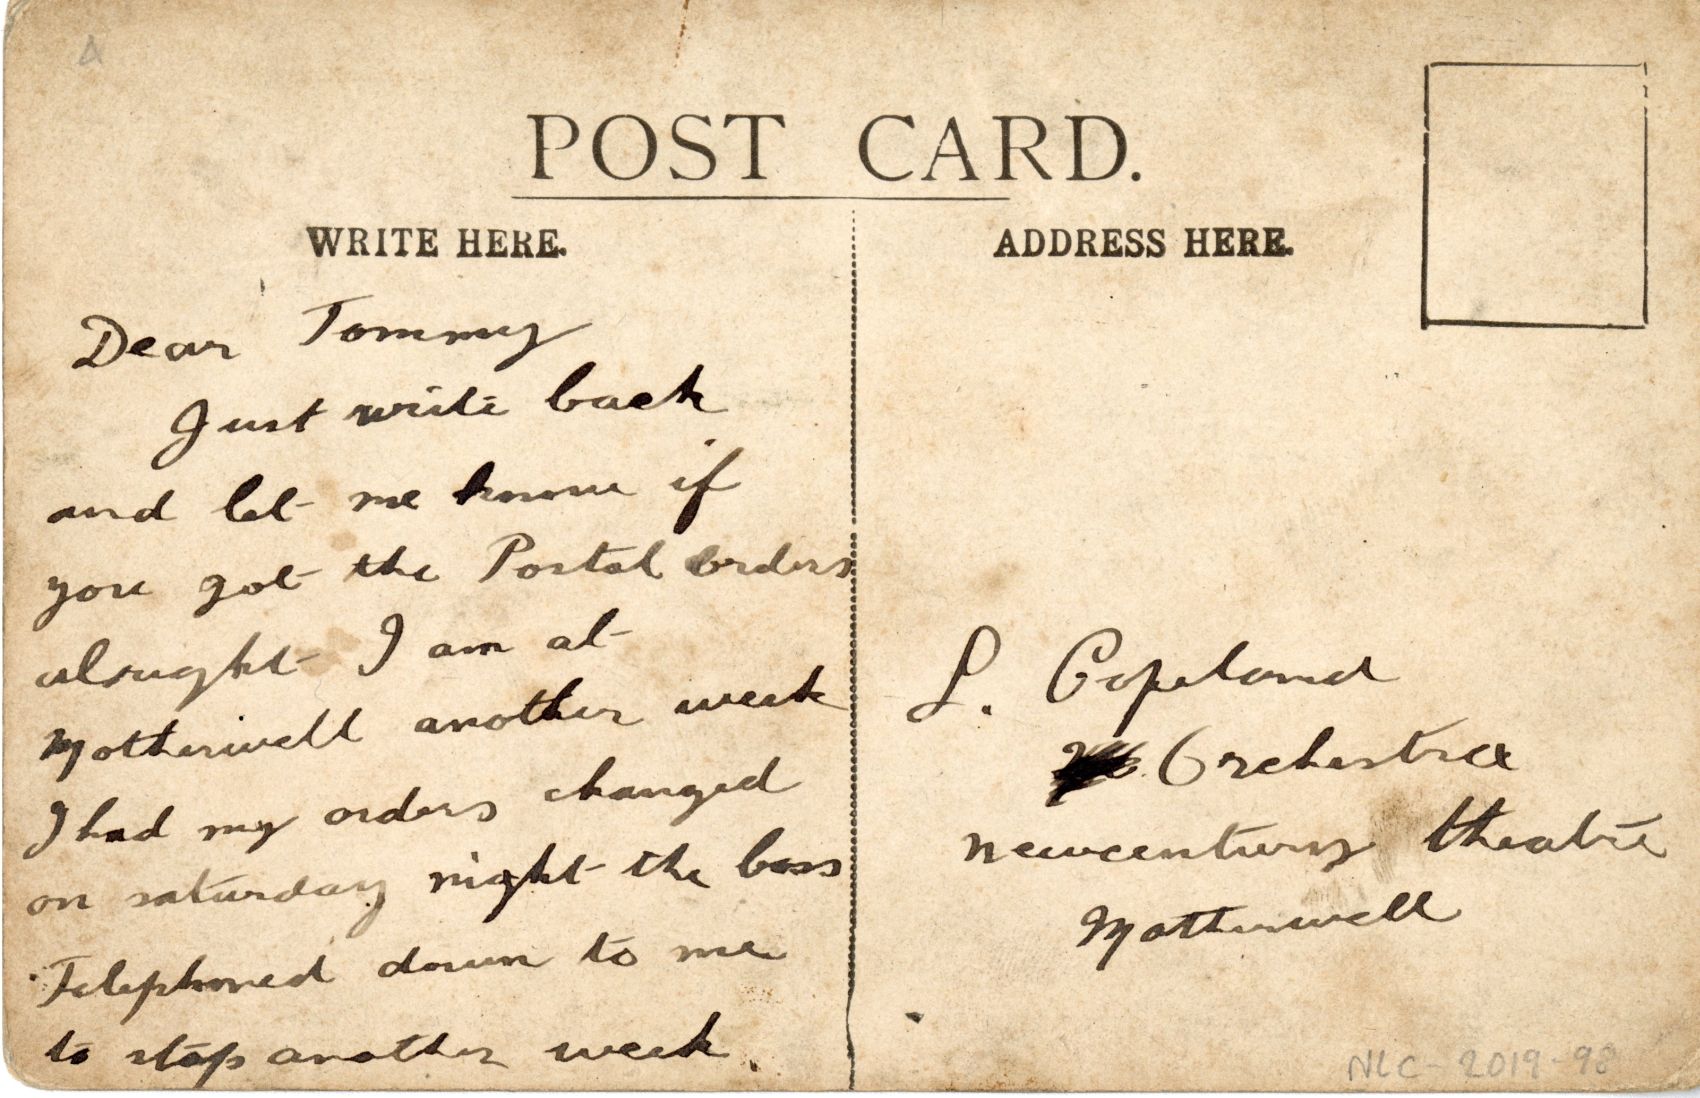 POST CARD.
WRITE HERE.
ADDRESS HERE.
Dear Tommy
Just write back
and let me know if
you got the Postal orders
alright I am at
Motherwell another week
I had my orders changed
on saturday night the boss
Telephoned down to me
to stop another week.
L. Copeland
Orchestra
newcentury theatre
Motherwell
NLC-2019-98